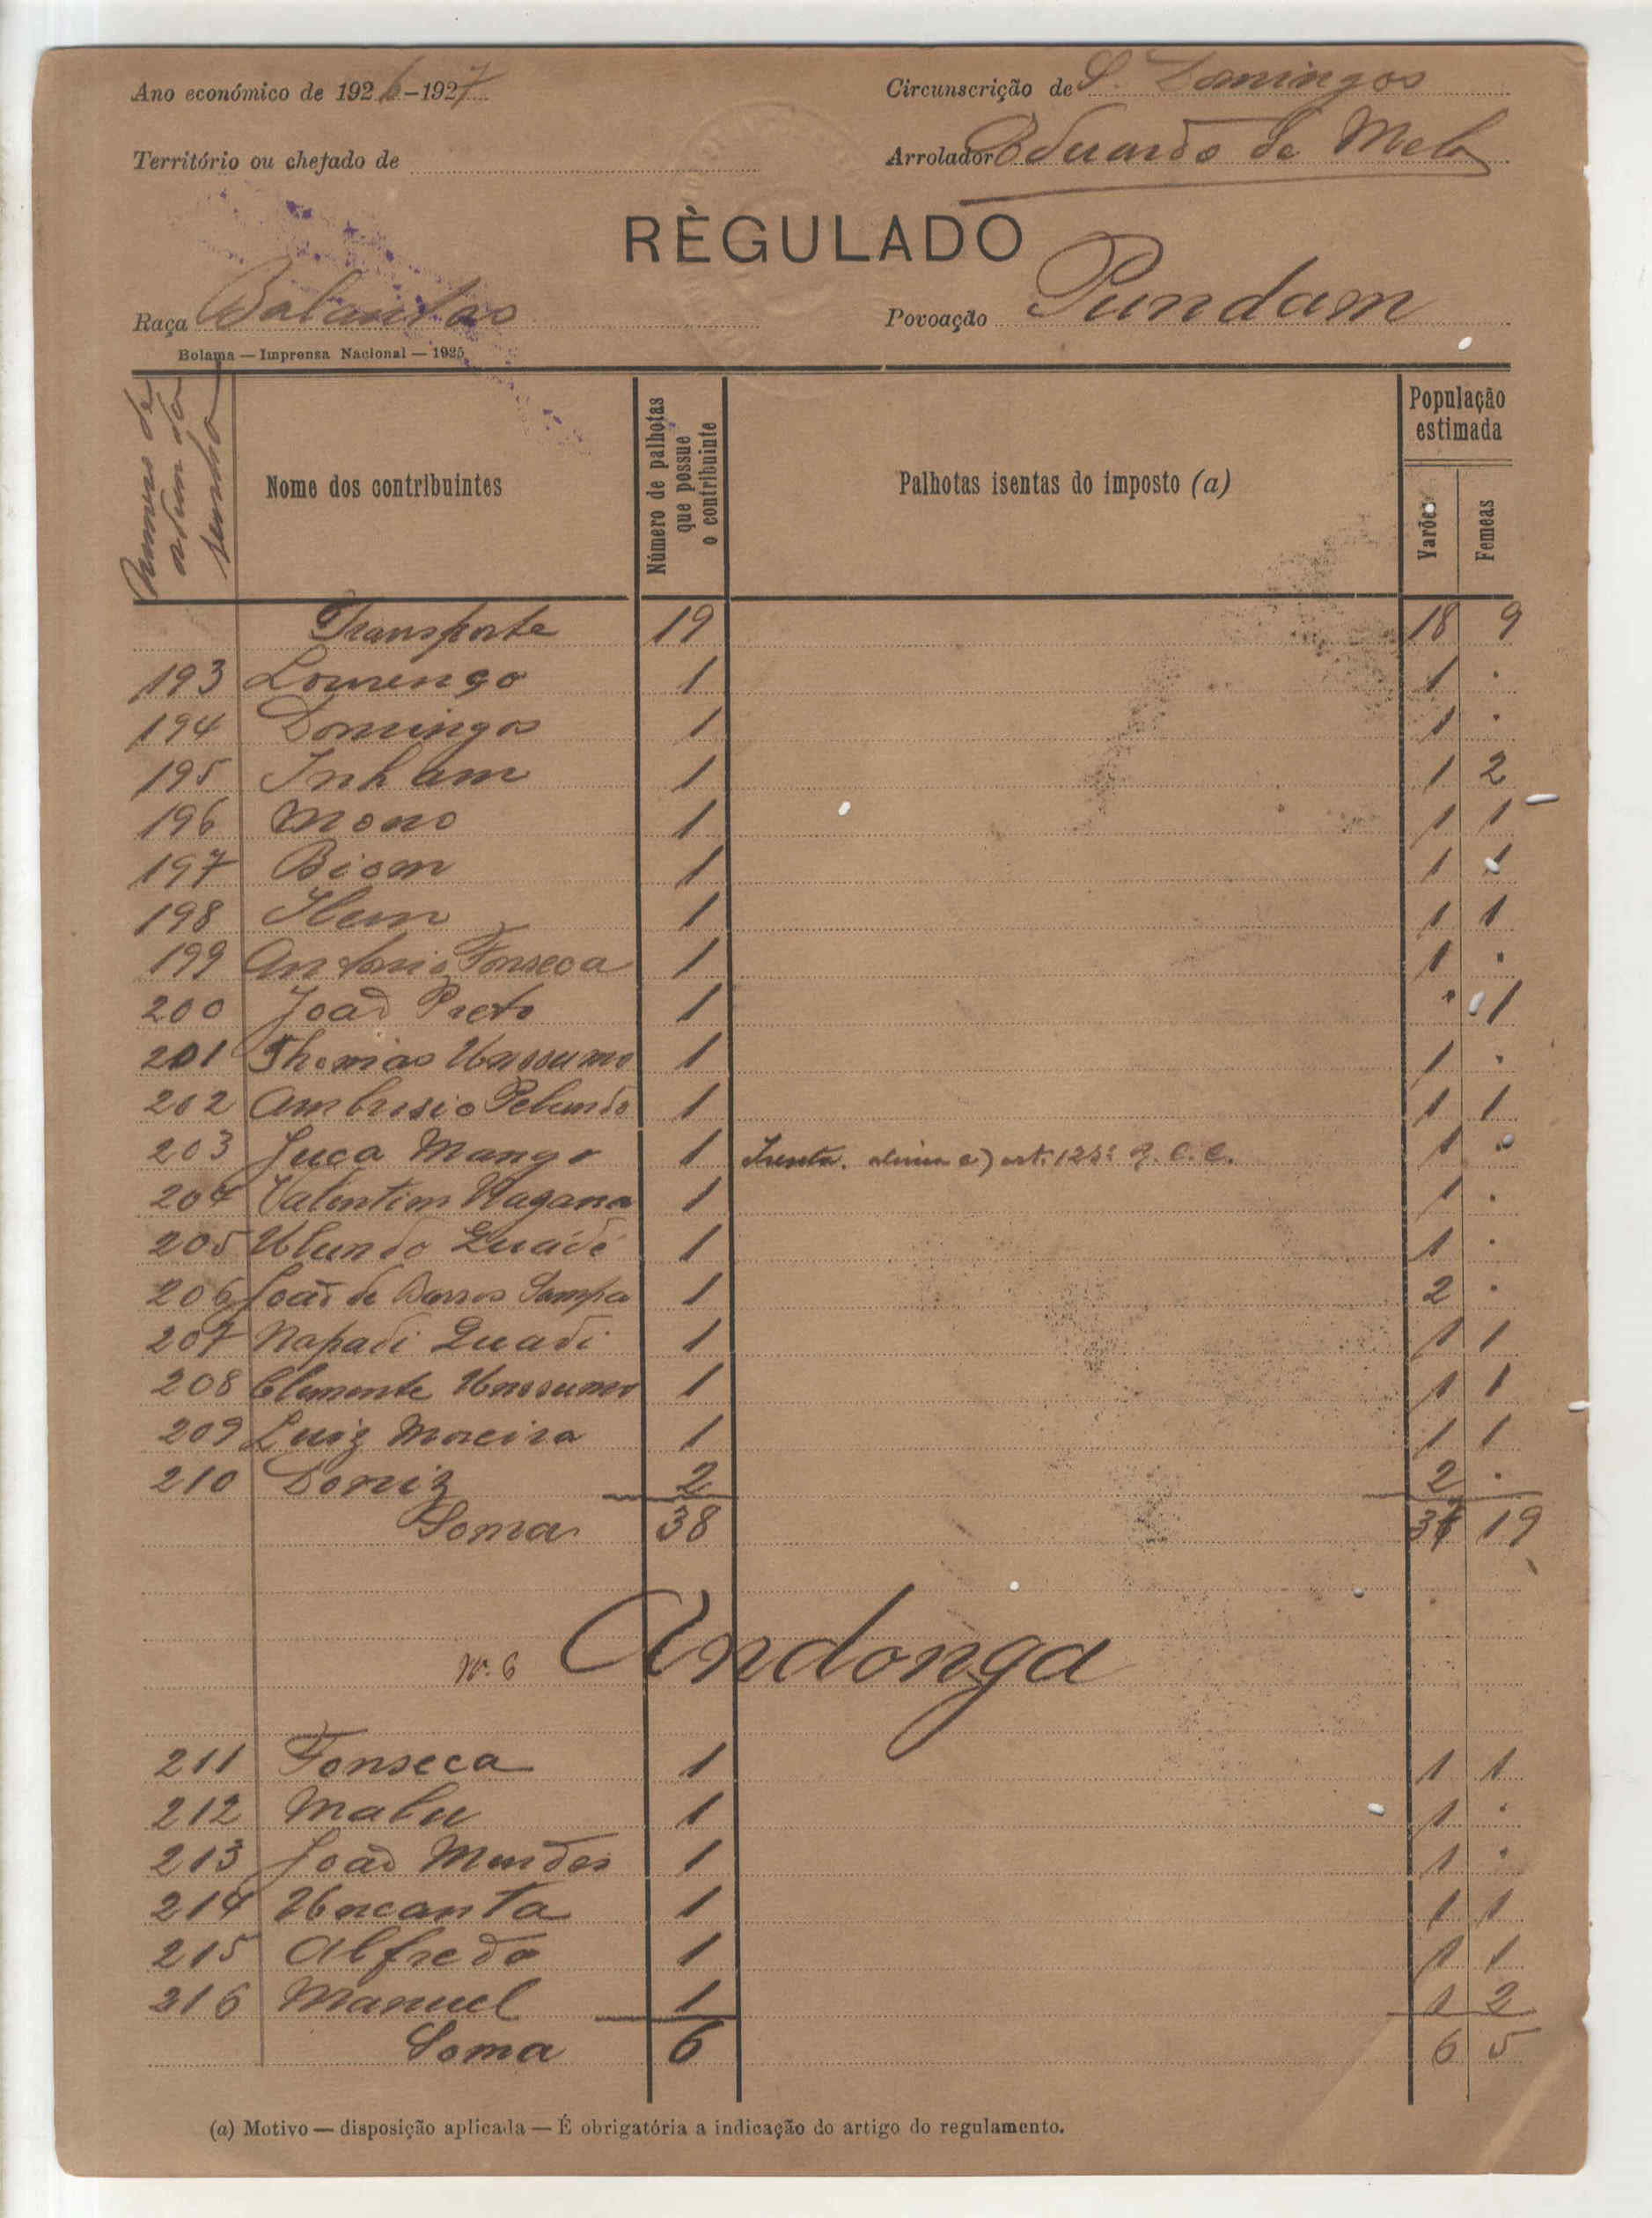 Ano económico de 1926-1927 Circunscrição de S. Domingos
Território ou chefado de Arrolador Eduardo de Melo
RÈGULADO
Raça Balantas Povoação Pundam
Bolama — Imprensa Nacional — 1925
Numero de
senha
Nome dos contribuintes
Número de palhotas
que possue
o contribuinte
Palhotas isentas do imposto (a)
População
estimada
Varões
Femeas
Transporte 19 18 9
193 Lourenço 1 1 .
194 Domingos 1 1 .
195 Inham 1 1 2
196 Mono 1 1 1
197 Biom 1 1 1
198 1 1 1
199 Antonio Fonseca 1 1 .
200 João Preto 1 . 1
201 Thomas Unssumo 1 1 .
202 Ambrosio Pelundo 1 1 1
203 Juca Mango 1 Isenta. alinea art. 125º 1 .
204 Valentim 1 1 .
205 Ulundo Quádé 1 1 .
206 João de Barros Sampa 1 2 .
207 Napadi Quadi 1 1 1
208 Clemente Unssumo 1 1 1
209 Luiz Moreira 1 1 1
210 Doniz 2 2 .
Soma 38 37 19
Nº. 6 Andonga
211 Fonseca 1 1 1
212 Malu 1 1 .
213 João Mendes 1 1 .
214 Uncanta 1 1 1
215 Alfredo 1 1 1
216 Manuel 1 1 2
Soma 6 6 5
(a) Motivo — disposição aplicada — É obrigatória a indicação do artigo do regulamento.